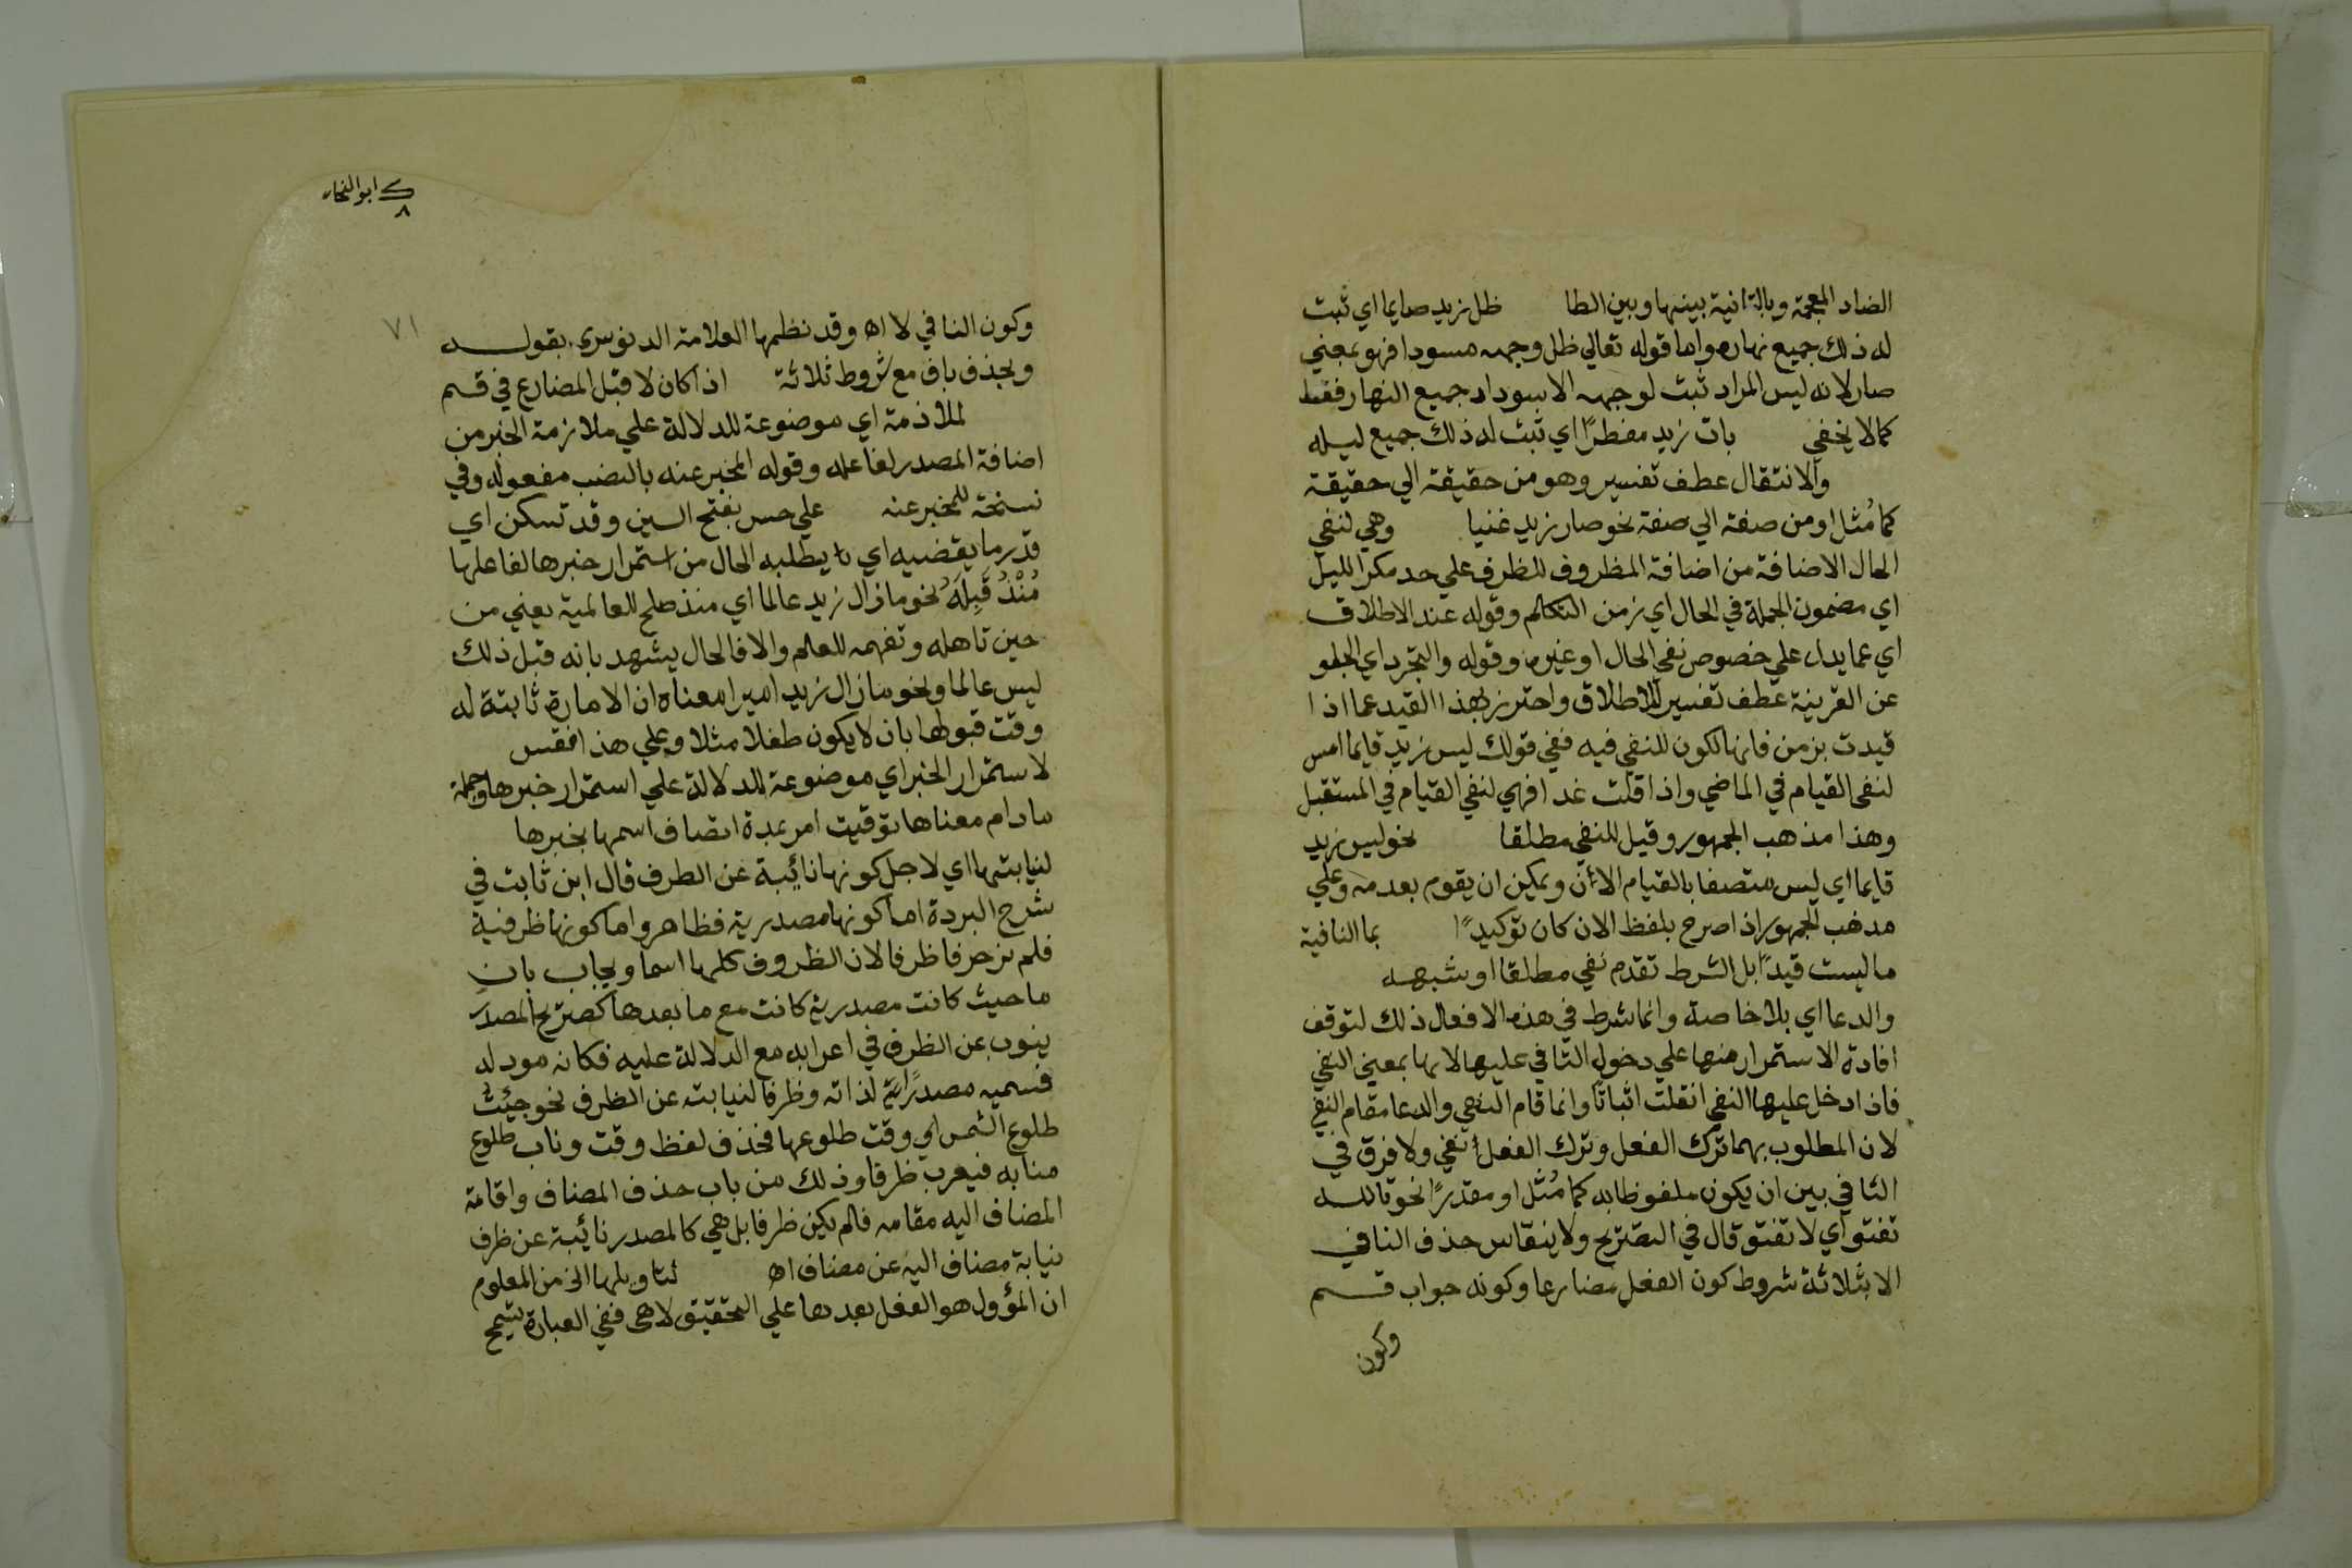 الضاد المعجمة وبالثانية بينها وبين الظا ظل زيد صايما اي ثبت
له ذلك جميع نهاره واما قوله تعالي ظل وجهه مسودا فهو بمعني
صار لانه ليس المراد ثبت لوجهه الاسوداد جميع النهار فقط
كما لا يخفي بات زيد مفطرًا اي ثبت له ذلك جميع ليله
والانتقال عطف تفسير وهو من حقيقة الي حقيقة
كما مُثل او من صفة الي صفة نحو صار زيد غنيا وهي لنفي
الحال الاضافة من اضافة المظروف للظرف علي حد مكر الليل
اي مضمون الجملة في الحال اي زمن التكالم وقوله عند الاطلاق
اي عما يدل علي خصوص نفي الحال او غيره وقوله والتجرد اي الخلو
عن القرينة عطف تفسير للاطلاق واحترز بهذا القيد عما اذا
قيدت بزمن فانها لكون للنفي فيه ففي قولك ليس زيد قايما امس
لنفي القيام في الماضي واذا قلت غدا فهي لنفي القيام في المستقبل
وهذا مذهب الجمهور وقيل للنفي مطلقا نحو ليس زيد
قايما اي ليس متصفا بالقيام الآن ويمكن ان يقوم بعد مه وعلي
مدهب الجمهور اذا صرح بلفظ الان كان توكيدًا بما النافية
ما ليست قيدًا بل الشرط تقدم نفي مطلقا او شبهه
والدعا اي بلا خاصة وانما شرط في هذه الافعال ذلك لتوقف
افادة الاستمرار منها علي دخول النافي عليها لانها بمعني النفي
فاذا دخل عليها النفي انقلت اثباتًا وانما قام النهي والدعا مقام النفي
لان المطلوب بهما ترك الفعل وترك الفعل نفي ولا فرق في
النافي بين ان يكون ملفوظا به كما مُثل او مقدرًا نحو تالله
تفتو اي لا تفتو قال في التصريح ولا ينقاس حذف النافي
الا بثلاثة شروط كون الفعل مضارعا وكونه جواب قسم
وكون
ابو النجا
٨
٧١
وكون النافي لا اه وقد نظمها العلامة الدنوسري بقوله
ويحذف ناف مع شروط ثلاثة اذا كان لا قبل المضارع في قسم
لملازمة اي موضوعة للدلالة علي ملازمة الخبر من
اضافة المصدر لفاعله وقوله المخبر عنه بالنصب مفعوله وفي
نسخة للمخبر عنه علي حسب بفتح السين وقد تسكن اي
قدر ما يقضيه اي ما يطلبه الحال من استمرار خبرها لفاعلها
مُنْذُ قَبِلَهُ نحو ما زال زيد عالما اي منذ صلح للعالمية يعني من
حين تاهله وتفهمه للعلم والا فالحال يشهد بانه قبل ذلك
ليس عالما ونحو ما زال زيد اميرا معناه ان الامارة ثابتة له
وقت قبولها بان لا يكون طفلا مثلا وعلي هذا فقس
لاستمرار الخبر اي موضوعة للدلالة علي استمرار خبرها وجملة
ما دام معناها توقيت امر بمدة اتصاف اسمها بخبرها
لنيابتها اي لاجل كونها نائبة عن الظرف قال ابن ثابت في
شرح البردة اما كونها مصدرية فظاهر واما كونها ظرفية
فلم نر حرفا ظرفا لان الظروف كلها اسما ويجاب بان
ما حيث كانت مصدرية كانت مع ما بعدها كصريح المصدر
ينوب عن الظرف في اعرابه مع الدلالة عليه فكانه مودله
فسميه مصدرًا لذاته وظرفا لنيابته عن الظرف نحو جيئت
طلوع الشمس اي وقت طلوعها فحذف لفظ وقت وناب طلوع
منابه فيعرب ظرفا وذلك من باب حذف المضاف واقامة
المضاف اليه مقامه فلم يكن ظرفا بل هي كالمصدر نائبة عن ظرف
نيابة مضاف اليه عن مضاف اه لتاويلها الخ من المعلوم
ان المؤول هو الفعل بعدها علي التحقيق لا هي ففي العبارة تسمح